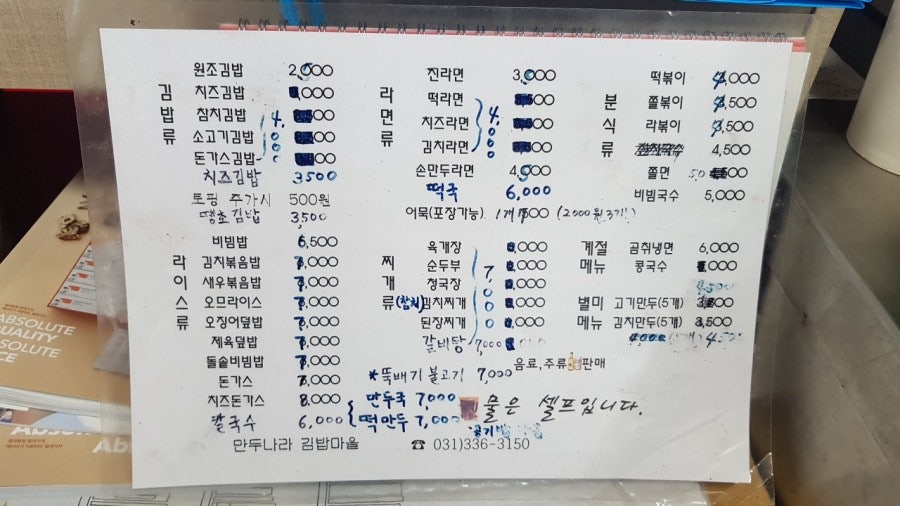 김밥류
원조김밥 2,500
치즈김밥 ,000
참치김밥
소고기김밥
돈가스김밥
4.000
치즈김밥 3500
토핑 추가시 500원
땡초김밥 3,500
라면류
진라면 3,500
떡라면
치즈라면
김치라면
4.000
손만두라면 4,500
떡국 6,000
어묵(포장가능) 1개 (2000원 3개)
분식류
떡볶이 4,000
쫄볶이 4,500
라볶이 3,500
4,500
쫄면
비빔국수 5,000
라이스류
비빔밥 6,500
김치볶음밥 7,000
새우볶음밥 7,000
오므라이스 7,000
오징어덮밥 7,000
제육덮밥 7,000
돌솥비빔밥 7,000
돈가스 7,000
치즈돈가스 8,000
칼국수 6,000
찌개류
육개장
순두부
청국장
(참치)김치찌개
된장찌개
7.000
갈비탕 7,000
*뚝배기 불고기 7,000
만두국 7,000
떡만두 7,000
계절메뉴
곰취냉면 6,000
콩국수
별미메뉴
고기만두(5개)
김치만두(5개) 3,500
4500
음료,주류 판매
물은 셀프입니다.
공기밥
만두나라 김밥마을 ☎ 031)336-3150
ABSOLUTE
QUALITY
ABSOLUTE